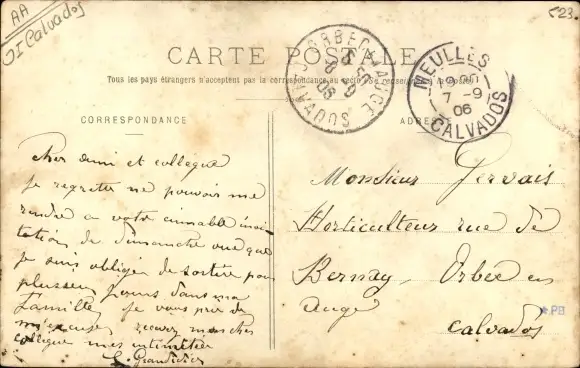 AA
OI Calvados
523
CARTE POSTALE
Tous les pays étrangers n'acceptent pas la correspondance au recto (Se renseigner à la Poste)
ORBEC-EN-AUGE
06
CALVADOS
MEULLES
7 -9
06
CALVADOS
CORRESPONDANCE
ADRESSE
Cher ami et collegue
Je regrette ne pouvoir me
rendre a votre aimable invi-
tation de dimanche vue que
je suis obligé de sortire pour
plusieur jours dans ma
Famille je vous prie de
m'excuser recevez mon cher
collegue mes
Monsieur Gervais
Horticulteur rue de
Bernay, Orbec en
Auge
Calvados
* PH